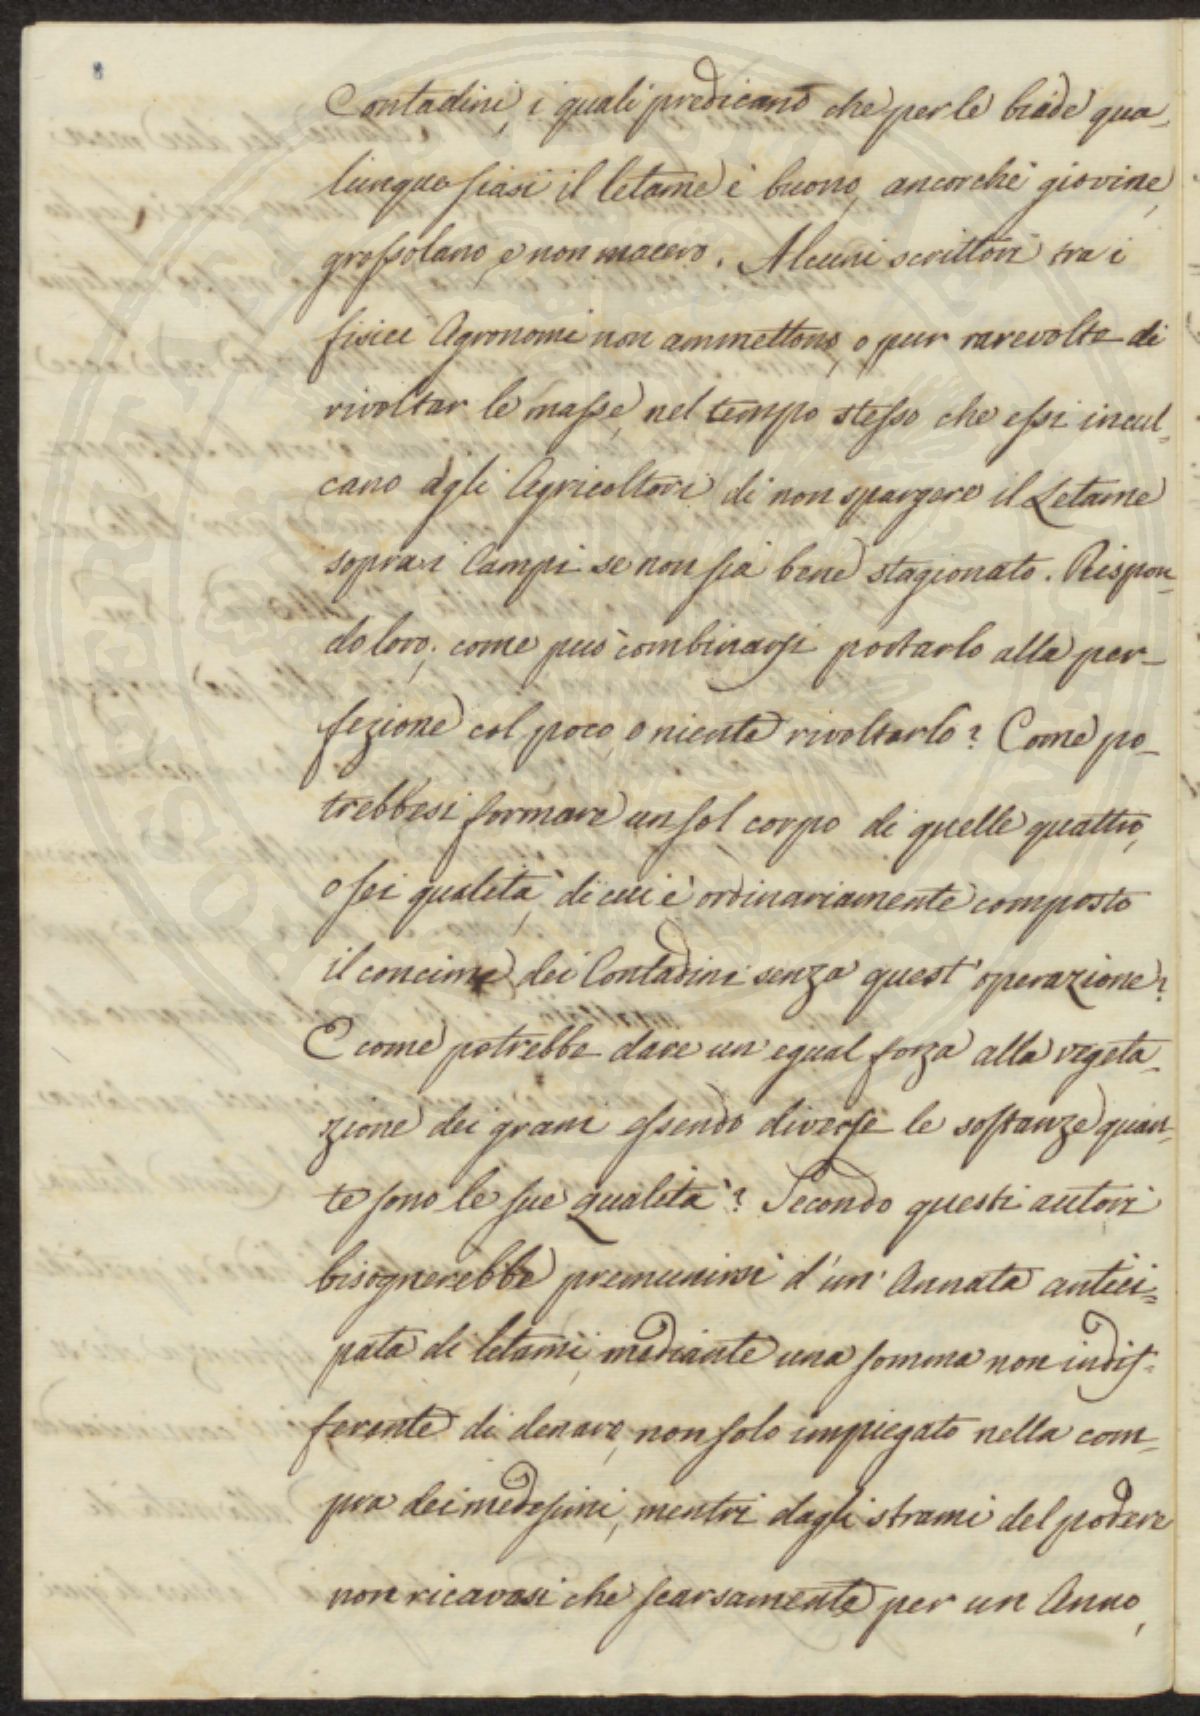 8
Contadini, i quali predicano che per le biade qua-
lunque siasi il letame è buono, ancorchè giovine,
grossolano, e non macero. Alcuni scrittori tra i
fisici Agronomi non ammettono, o pur rarevolte di
rivoltar le masse, nel tempo stesso che essi incul-
cano agli Agricoltori di non spargere il Letame
sopra i Campi se non sia bene stagionato. Rispon-
do loro; come può combinarsi portarlo alla per-
fezione col poco, o niente rivoltarlo? Come po-
trebbesi formare un sol corpo di quelle quattro,
o sei qualità, di cui è ordinariamente composto
il concime dei Contadini senza quest'operazione?
E come potrebbe dare un'egual forza alla vegeta-
zione dei grani essendo diverse le sostanze quan-
te sono le sue qualità? Secondo questi autori
bisognerebbe premunirsi d'un'Annata antici-
pata di letami, mediante una somma non indif-
ferente di denaro, non solo impiegato nella com-
pra dei medesimi, mentri dagli strami del podere
non ricavasi che scarsamente per un Anno,